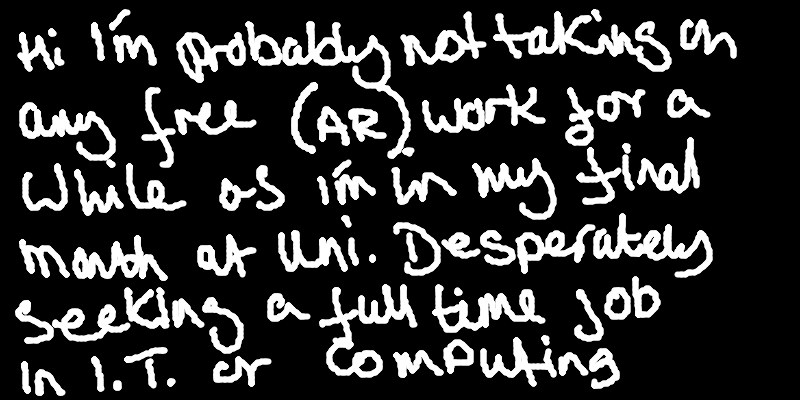 Hi I'm probably not taking on
any free (AR) work for a
while as i'm in my final
month at uni. Desperately
seeking a full time job
in I.T. or computing